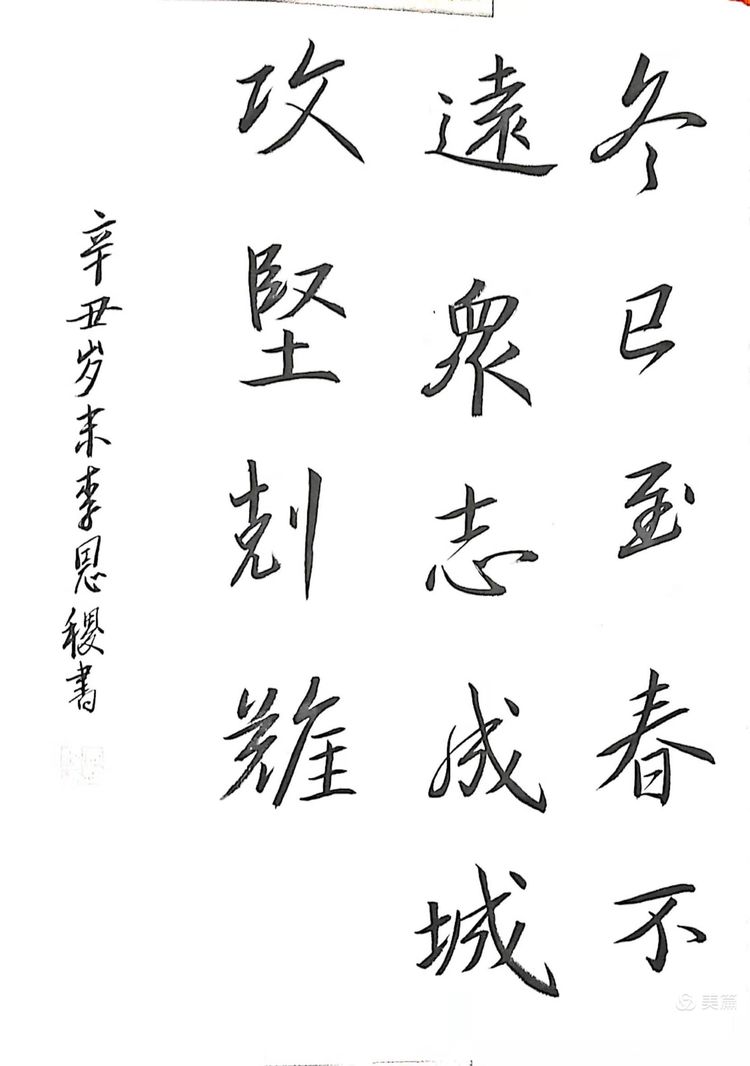 冬已至春不
遠衆志成城
攻堅剋難
辛丑岁末李恩稷書
美篇